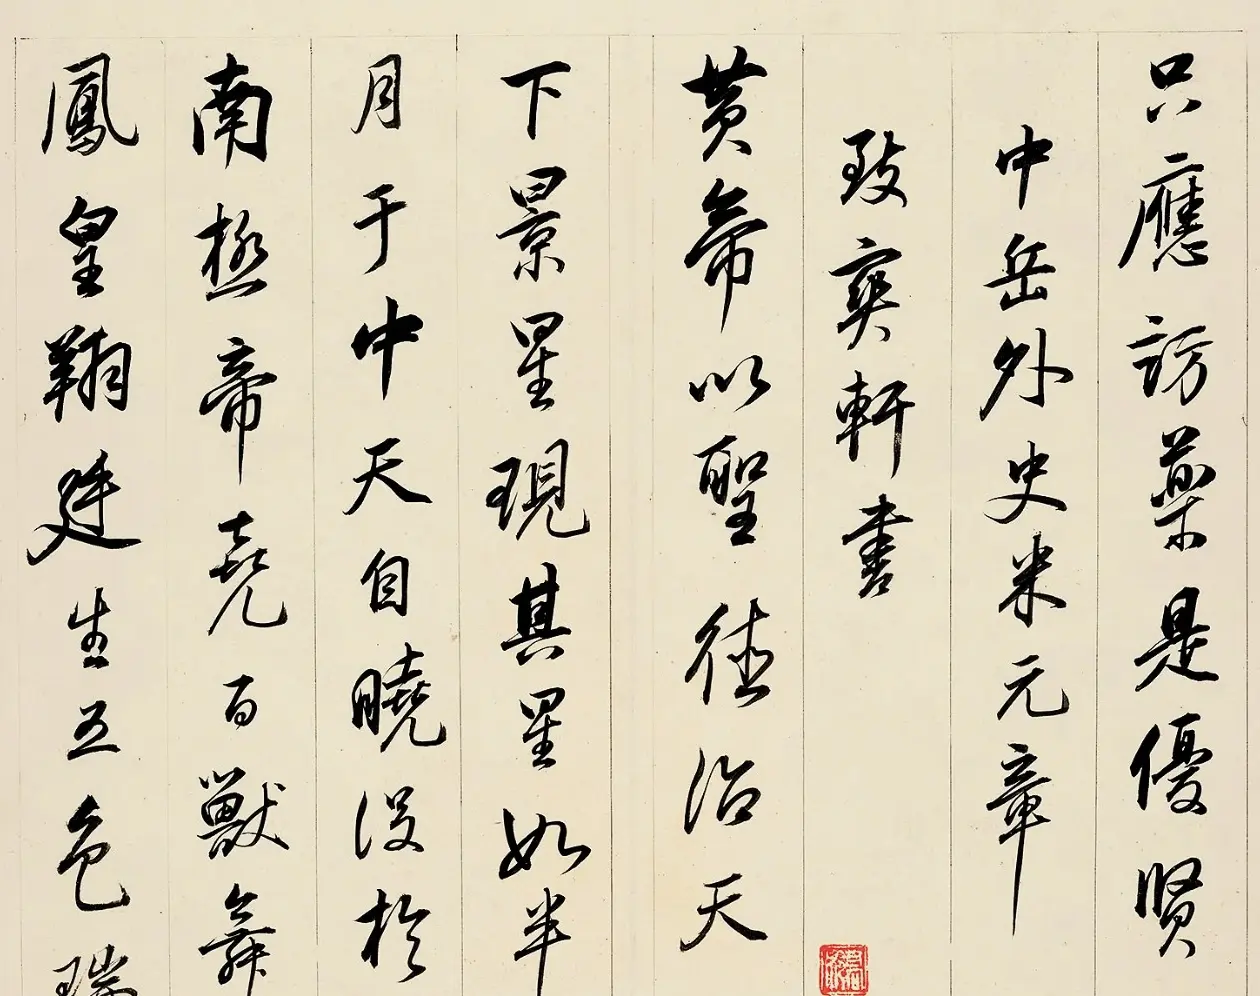 只應訪藥是優賢
中岳外史米元章
致爽軒書
黃帝以聖德治天
下景星現其星如半
月于中天自曉没於
南極帝堯百獸舞
鳳皇翔廷生五色